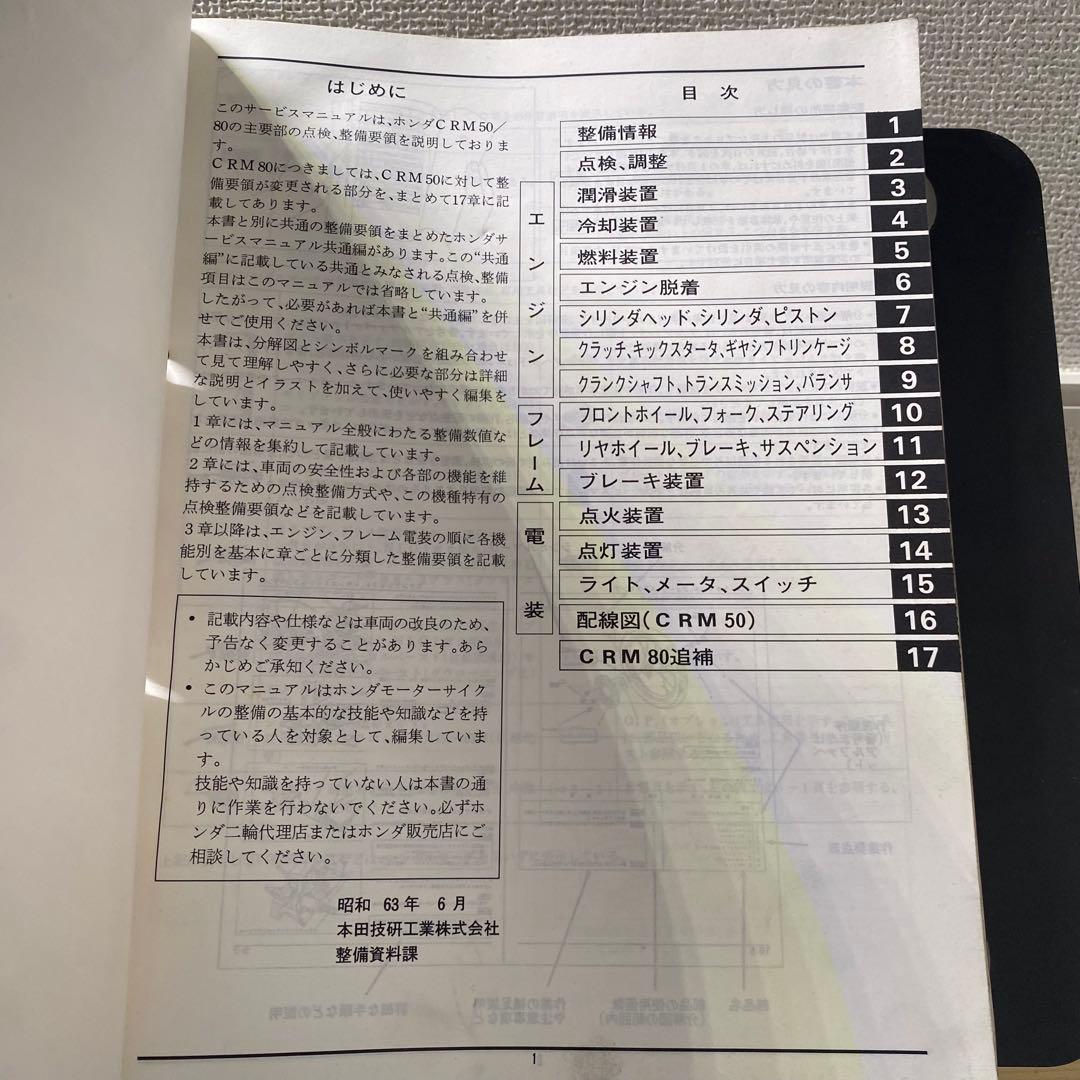 はじめに
このサービスマニュアルは、ホンダCRM50／
80の主要部の点検、整備要領を説明しておりま
す。
CRM80につきましては、CRM50に対して整
備要領が変更される部分を、まとめて17章に記
載してあります。
本書と別に共通の整備要領をまとめたホンダサ
ービスマニュアル共通編があります。この“共通
編”に記載している共通とみなされる点検、整備
項目はこのマニュアルでは省略しています。
したがって、必要があれば本書と“共通編”を併
せてご使用ください。
本書は、分解図とシンボルマークを組み合わせ
て見て理解しやすく、さらに必要な部分は詳細
な説明とイラストを加えて、使いやすく編集を
しています。
1章には、マニュアル全般にわたる整備数値な
どの情報を集約して記載しています。
2章には、車両の安全性および各部の機能を維
持するための点検整備方式や、この機種特有の
点検整備要領などを記載しています。
3章以降は、エンジン、フレーム電装の順に各機
能別を基本に章ごとに分類した整備要領を記載
しています。
• 記載内容や仕様などは車両の改良のため、
予告なく変更することがあります。あら
かじめご承知ください。
• このマニュアルはホンダモーターサイク
ルの整備の基本的な技能や知識などを持
っている人を対象として、編集していま
す。
技能や知識を持っていない人は本書の通
りに作業を行わないでください。必ずホ
ンダ二輪代理店またはホンダ販売店にご
相談してください。
昭和 63年 6月
本田技研工業株式会社
整備資料課
目 次
整備情報 1
点検、調整 2
エンジン
潤滑装置 3
冷却装置 4
燃料装置 5
エンジン脱着 6
シリンダヘッド、シリンダ、ピストン 7
クラッチ、キックスタータ、ギヤシフトリンケージ 8
クランクシャフト、トランスミッション、バランサ 9
フレーム
フロントホイール、フォーク、ステアリング 10
リヤホイール、ブレーキ、サスペンション 11
ブレーキ装置 12
電装
点火装置 13
点灯装置 14
ライト、メータ、スイッチ 15
配線図(CRM50) 16
CRM80追補 17
1